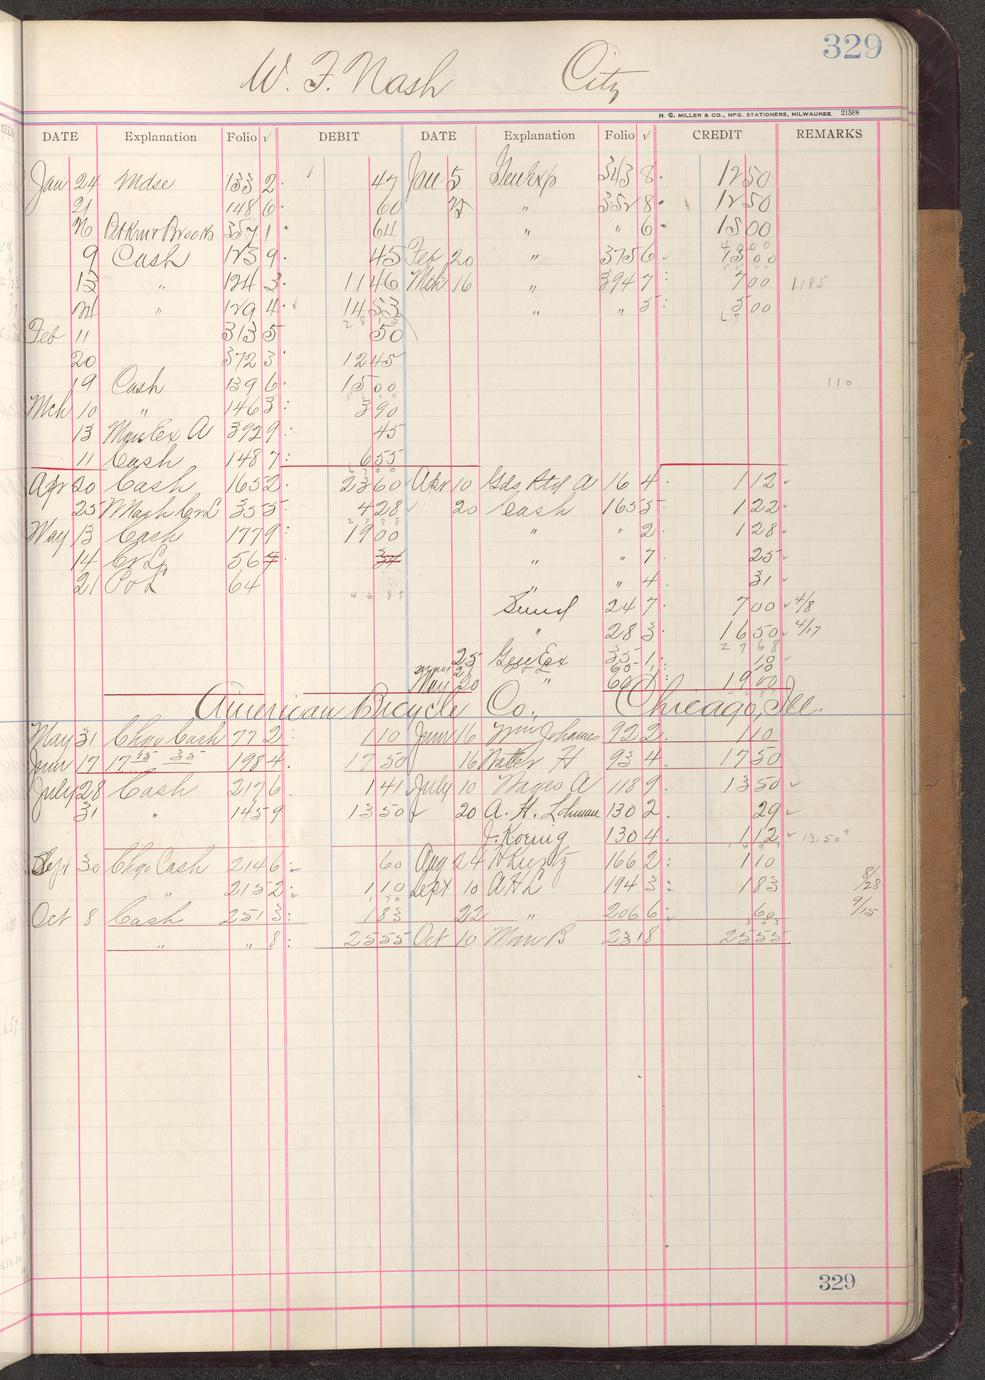 329
W. F. Nash City
H. G. MILLER & CO., MFG. STATIONERS, MILWAUKEE. 21588
DATE Explanation Folio √ DEBIT DATE Explanation Folio √ CREDIT REMARKS
Jan 24 Mdse 133 2 47 Jan 5 Gen Exp 313 8 12 50
21 148 6 60 " 352 8 12 50
357 1 64 " " 6 15 00
9 Cash 123 9 45 Feb 20 " 375 6 43 00
13 " 124 3 11 46 Mch 16 " 394 7 7 00 1185
" 129 4 14 53 " " 5 5 00
Feb 11 313 5 50
20 372 3 12 45
19 Cash 139 6 15 00 110
Mch 10 " 146 3 3 90
13 Man Ex A 392 9 45
11 Cash 148 7 6 55
Apr 20 Cash 165 2 23 60 Apr 10 Gds Rtd A 16 4 1 12
25 35 5 4 28 20 Cash 165 5 1 22
May 13 Cash 177 9 19 00 " " 2 1 28
14 56 7 " " 7 25
21 P & L 64 " " 4 31
Sund 24 7 7 00 4/8
" 28 3 16 50 4/17
25 Gen Ex 35 1 10
May 20 " 60 19 00
American Bicycle Co., Chicago, Ill.
May 31 Chgo Cash 77 2 1 10 June 16 Wm Johannes 92 2 1 10
June 17 198 4 17 50 16 Natter H 93 4 17 50
July 28 Cash 217 6 1 41 July 10 Wages A 118 9 13 50
31 " 145 9 13 50 20 A. H. Lohman 130 2 29
J. Koenig 130 4 1 12 13.50
Sept 30 Chgo Cash 214 6 60 Aug 24 H Kurtz 166 2 1 10
" 215 2 1 10 Sept 10 A H L 194 3 1 83 8/28
Oct 8 Cash 251 3 1 83 22 " 206 6 60 9/15
" " 8 25 55 Oct 10 Man B 231 8 25 55
329